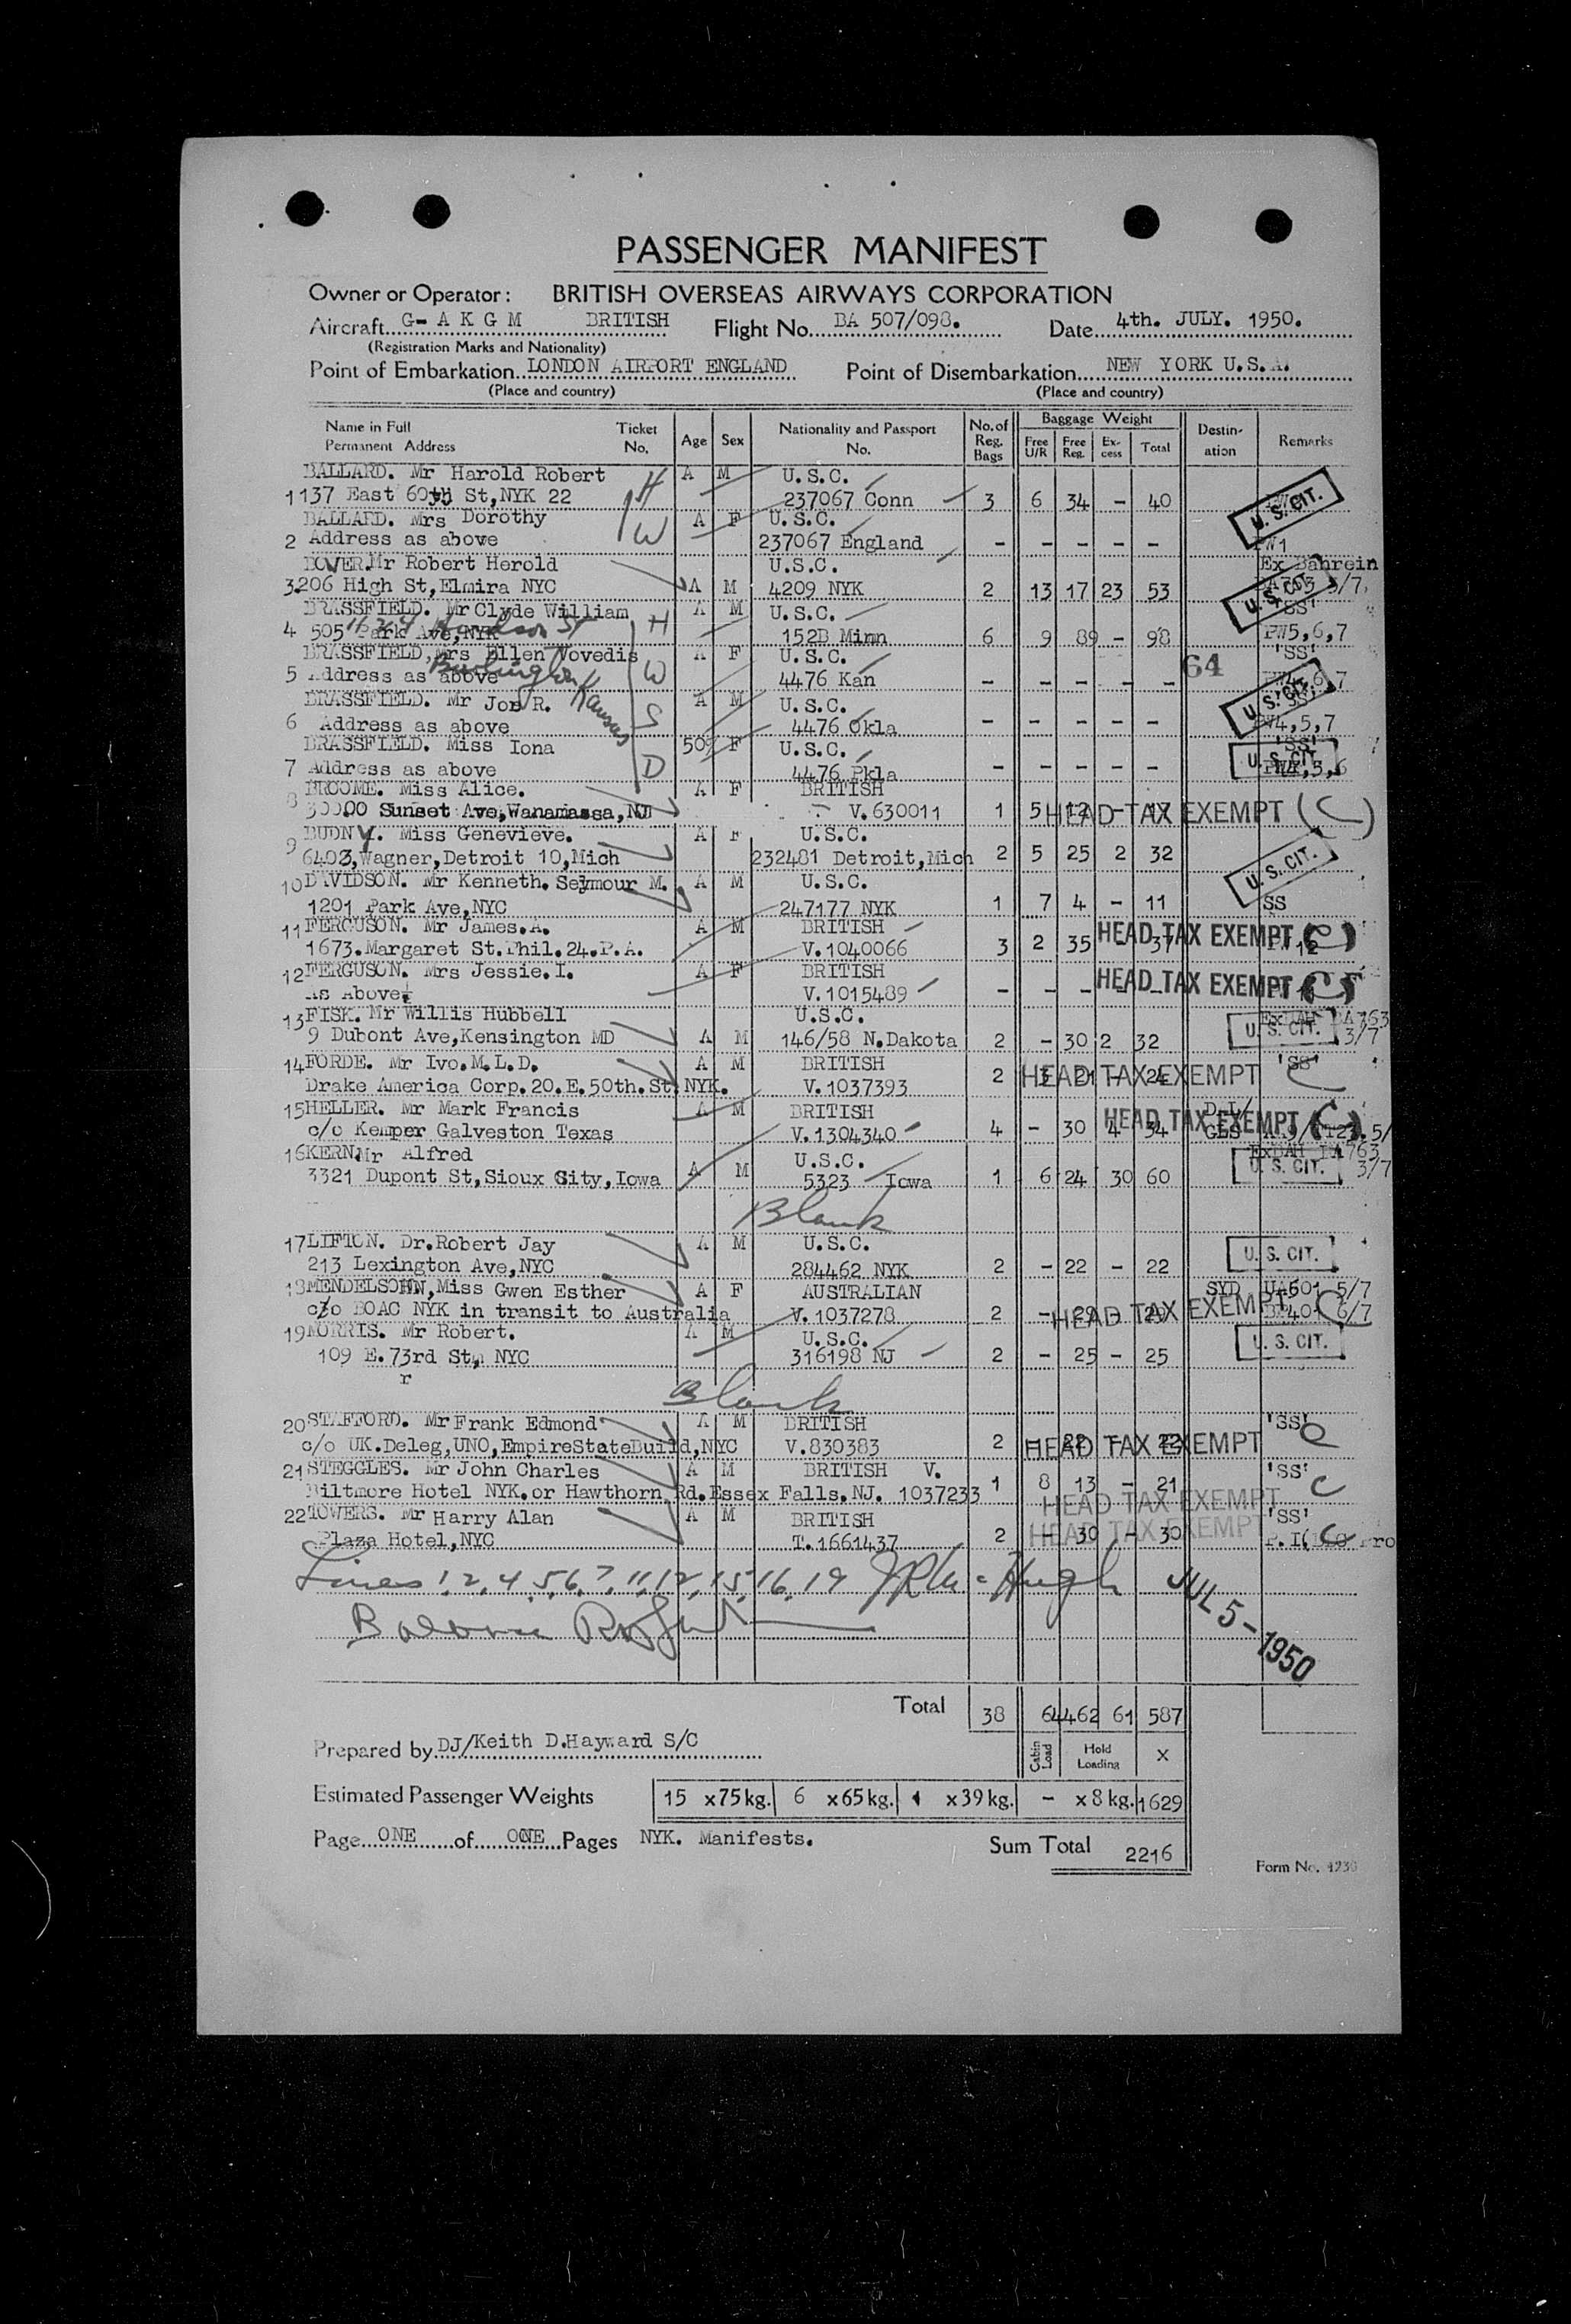 PASSENGER MANIFEST
Owner or Operator: BRITISH OVERSEAS AIRWAYS CORPORATION
Aircraft G- A K G M BRITISH Flight No. BA 507/098. Date 4th. JULY. 1950.
(Registration Marks and Nationality)
Point of Embarkation LONDON AIRPORT ENGLAND Point of Disembarkation NEW YORK U.S.A.
(Place and country) (Place and country)
Name in Full Permanent Address Ticket No. Age Sex Nationality and Passport No. No. of Reg. Bags Baggage Weight Free U/R Free Reg. Ex-cess Total Destin-ation Remarks
BALLARD. Mr Harold Robert H A M U.S.C.
1 137 East 60th St,NYK 22 237067 Conn 3 6 34 - 40 U. S. CIT.
BALLARD. Mrs Dorothy W A F U.S.C.
2 Address as above 237067 England - - - - - PW1
BOVER.Mr Robert Herold U.S.C. Ex Bahrein
3.206 High St,Elmira NYC A M 4209 NYK 2 13 17 23 53 U. S. CIT. 3/7
BRASSFIELD. Mr Clyde William H A M U.S.C. 'SS'
4 505 Park Ave,NYK 152B Minn 6 9 89 - 98 PW5,6,7
BRASSFIELD,Mrs Ellen Novedis A F U.S.C. 64 'SS'
5 Address as above Burlington Kansas W 4476 Kan - - - - -
BRASSFIELD. Mr Jon R. S A M U.S.C. U. S. CIT.
6 Address as above 4476 Okla - - - - - PW4,5,7
BRASSFIELD. Miss Iona 50% F U.S.C. 'SS'
7 Address as above D 4476 Pkla - - - - - U. S. CIT. PW4,5,6
BROOME. Miss Alice. A F BRITISH
8 30000 Sunset Ave,Wanamassa,NJ V.630011 1 5 12 - 17 HEAD TAX EXEMPT (C)
9 BUDNY. Miss Genevieve. A F U.S.C.
6403,Wagner,Detroit 10,Mich 232481 Detroit,Mich 2 5 25 2 32 U. S. CIT.
10 DAVIDSON. Mr Kenneth. Seymour M. A M U.S.C.
1201 Park Ave,NYC 247177 NYK 1 7 4 - 11 SS
11 FERGUSON. Mr James.A. A M BRITISH
1673.Margaret St.Phil.24.P.A. V.1040066 3 2 35 - 37 HEAD TAX EXEMPT (C) 12
12 FERGUSON. Mrs Jessie.I. A F BRITISH
As Above. V.1015489 - - - - - HEAD TAX EXEMPT (C)
13 FISK. Mr Willis Hubbell U.S.C. ExBAH BA763
9 Dubont Ave,Kensington MD A M 146/58 N.Dakota 2 - 30 2 32 U. S. CIT. 3/7
14 FORDE. Mr Ivo.M.L.D. A M BRITISH 'SS'
Drake America Corp.20.E.50th.St.NYK. V.1037393 2 3 21 - 24 HEAD TAX EXEMPT C
15 HELLER. Mr Mark Francis A M BRITISH
c/o Kemper Galveston Texas V.1304340 4 - 30 4 34 HEAD TAX EXEMPT (C)
16 KERN.Mr Alfred U.S.C. ExBAH BA763
3321 Dupont St,Sioux City,Iowa A M 5323 Iowa 1 6 24 30 60 U. S. CIT. 3/7
Blank
17 LIFTON. Dr.Robert Jay A M U.S.C.
213 Lexington Ave,NYC 284462 NYK 2 - 22 - 22 U. S. CIT.
18 MENDELSOHN,Miss Gwen Esther A F AUSTRALIAN SYD UA601 5/7
c/o BOAC NYK in transit to Australia V.1037278 2 - 29 - 29 HEAD TAX EXEMPT C 6/7
19 MORRIS. Mr Robert. A M U.S.C.
109 E.73rd St, NYC 316198 NJ 2 - 25 - 25 U. S. CIT.
r
Blank
20 STAFFORD. Mr Frank Edmond A M BRITISH 'SS'
c/o UK.Deleg,UNO,EmpireStateBuild,NYC V.830383 2 - 22 - 22 HEAD TAX EXEMPT C
21 STEGGLES. Mr John Charles A M BRITISH V. 'SS'
Biltmore Hotel NYK.or Hawthorn Rd.Essex Falls.NJ. 1037233 1 8 13 - 21 HEAD TAX EXEMPT C
22 TOWERS. Mr Harry Alan A M BRITISH 'SS'
Plaza Hotel,NYC T.1661437 2 - 30 - 30 HEAD TAX EXEMPT C
Lines 1,2,4,5,6,7,11,12,15,16,19
JUL 5 - 1950
Total 38 64 462 61 587
Prepared by DJ/Keith D.Hayward S/C Cabin Load Hold Loading X
Estimated Passenger Weights 15 x75kg. 6 x65kg. 1 x39kg. - x8kg. 1629
Page ONE of ONE Pages NYK. Manifests. Sum Total 2216
Form No.